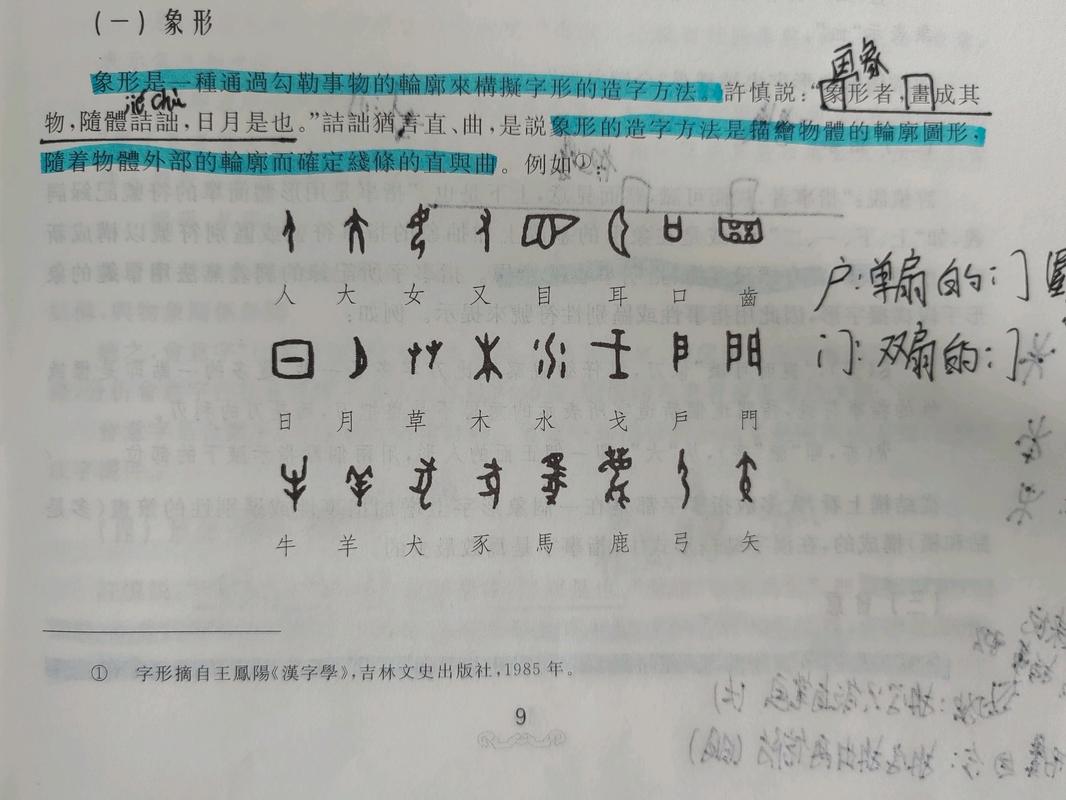 (一)象形
畫象
象形是一種通過勾勒事物的輪廓來構擬字形的造字方法。許慎説:“象形者,畫成其
jié chù
物,隨體詰詘,日月是也。”詰詘猶言直、曲,是説象形的造字方法是描繪物體的輪廓圖形,
隨着物體外部的輪廓而確定綫條的直與曲。例如①:
人 大 女 又 目 耳 口 齒
户:单扇的门
日 月 草 木 水 戈 戶 門
门:双扇的门
牛 羊 犬 豕 馬 鹿 弓 矢
① 字形摘自王鳳陽《漢字學》,吉林文史出版社,1985年。
9